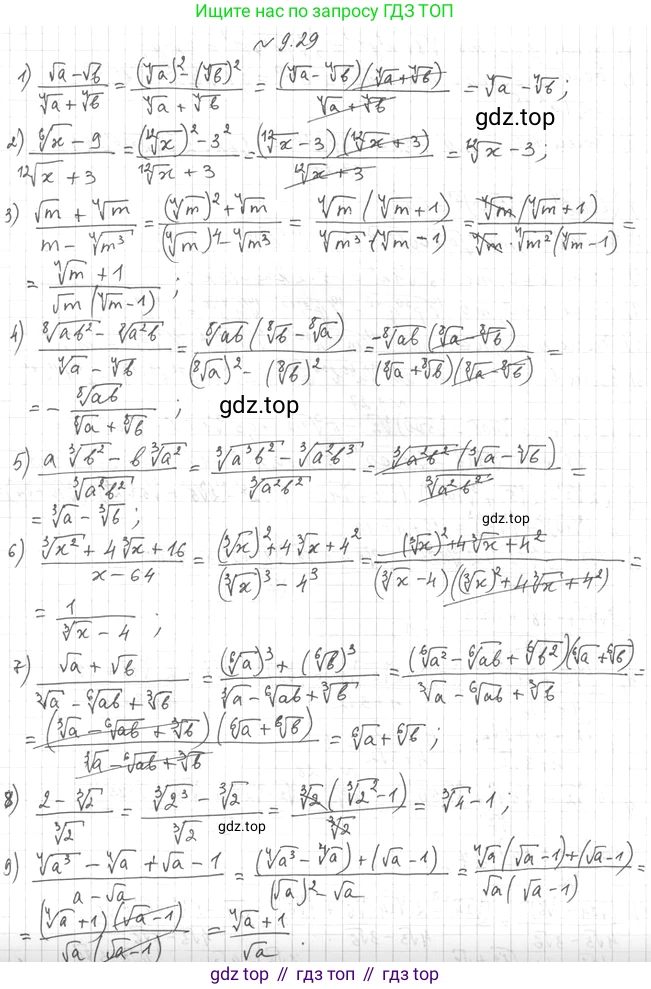 Больше решений по запросу ГДЗ ТОП
№ 9.29
1) (√a − √b)/(⁴√a + ⁴√b) = ((⁴√a)² − (⁴√b)²)/(⁴√a + ⁴√b) = ((⁴√a − ⁴√b)(⁴√a + ⁴√b))/(⁴√a + ⁴√b) = ⁴√a − ⁴√b;
gdz.top
2) (⁶√x − 9)/(¹²√x + 3) = ((¹²√x)² − 3²)/(¹²√x + 3) = ((¹²√x − 3)(¹²√x + 3))/(¹²√x + 3) = ¹²√x − 3;
3) (√m + ⁴√m)/(m − ⁴√m³) = ((⁴√m)² + ⁴√m)/((⁴√m)⁴ − ⁴√m³) = (⁴√m(⁴√m + 1))/(⁴√m³(⁴√m − 1)) = (⁴√m(⁴√m + 1))/(⁴√m · ⁴√m²(⁴√m − 1)) =
= (⁴√m + 1)/(√m(⁴√m − 1));
4) (⁸√ab² − ⁸√a²b)/(⁴√a − ⁴√b) = (⁸√ab(⁸√b − ⁸√a))/((⁸√a)² − (⁸√b)²) = (−⁸√ab(⁸√a − ⁸√b))/((⁸√a + ⁸√b)(⁸√a − ⁸√b)) =
= − ⁸√ab/(⁸√a + ⁸√b);
gdz.top
5) (a ³√b² − b ³√a²)/³√a²b² = (³√a³b² − ³√a²b³)/³√a²b² = (³√a²b²(³√a − ³√b))/³√a²b² =
= ³√a − ³√b;
gdz.top
6) (³√x² + 4³√x + 16)/(x − 64) = ((³√x)² + 4³√x + 4²)/((³√x)³ − 4³) = ((³√x)² + 4³√x + 4²)/((³√x − 4)((³√x)² + 4³√x + 4²)) =
= 1/(³√x − 4);
7) (√a + √b)/(³√a − ⁶√ab + ³√b) = ((⁶√a)³ + (⁶√b)³)/(³√a − ⁶√ab + ³√b) = ((⁶√a² − ⁶√ab + ⁶√b²)(⁶√a + ⁶√b))/(³√a − ⁶√ab + ³√b) =
= ((³√a − ⁶√ab + ³√b)(⁶√a + ⁶√b))/(³√a − ⁶√ab + ³√b) = ⁶√a + ⁶√b;
8) (2 − ³√2)/³√2 = (³√2³ − ³√2)/³√2 = (³√2(³√2² − 1))/³√2 = ³√4 − 1;
gdz.top
9) (⁴√a³ − ⁴√a + √a − 1)/(a − √a) = ((⁴√a³ − ⁴√a) + (√a − 1))/((√a)² − √a) = (⁴√a(√a − 1) + (√a − 1))/(√a(√a − 1)) =
= ((⁴√a + 1)(√a − 1))/(√a(√a − 1)) = (⁴√a + 1)/√a.
gdz.top // гдз.топ // гдз топ